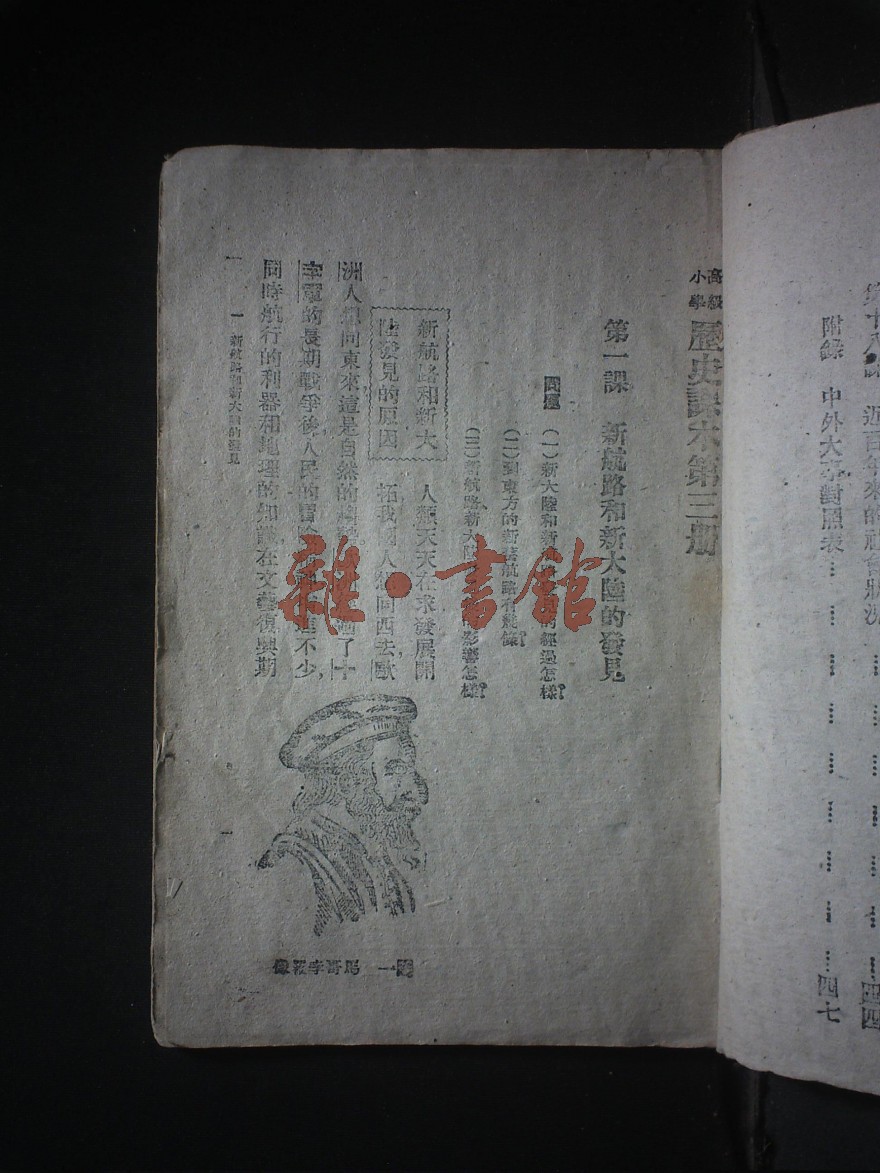 第十八課 近百年來的社會狀況………四四
附錄 中外大事對照表………四七
高級
小學
歷史課本第三册
第一課 新航路和新大陸的發見
問題 (一)新大陸和新 經過怎樣?
(二)到東方的新舊航路有幾條?
(三)新航路新大陸 影響怎樣?
新航路和新大
陸發見的原因
人類天天在求發展開
拓我國人想向西去,歐
洲人想向東來這是自然的 了十
字軍的長期戰爭後,人民的冒險 進不少,
同時航行的利器和地理的知識,在文藝復興期
圖一 馬哥孛羅像
一 新航路和新大陸的發見
一
雜·書館